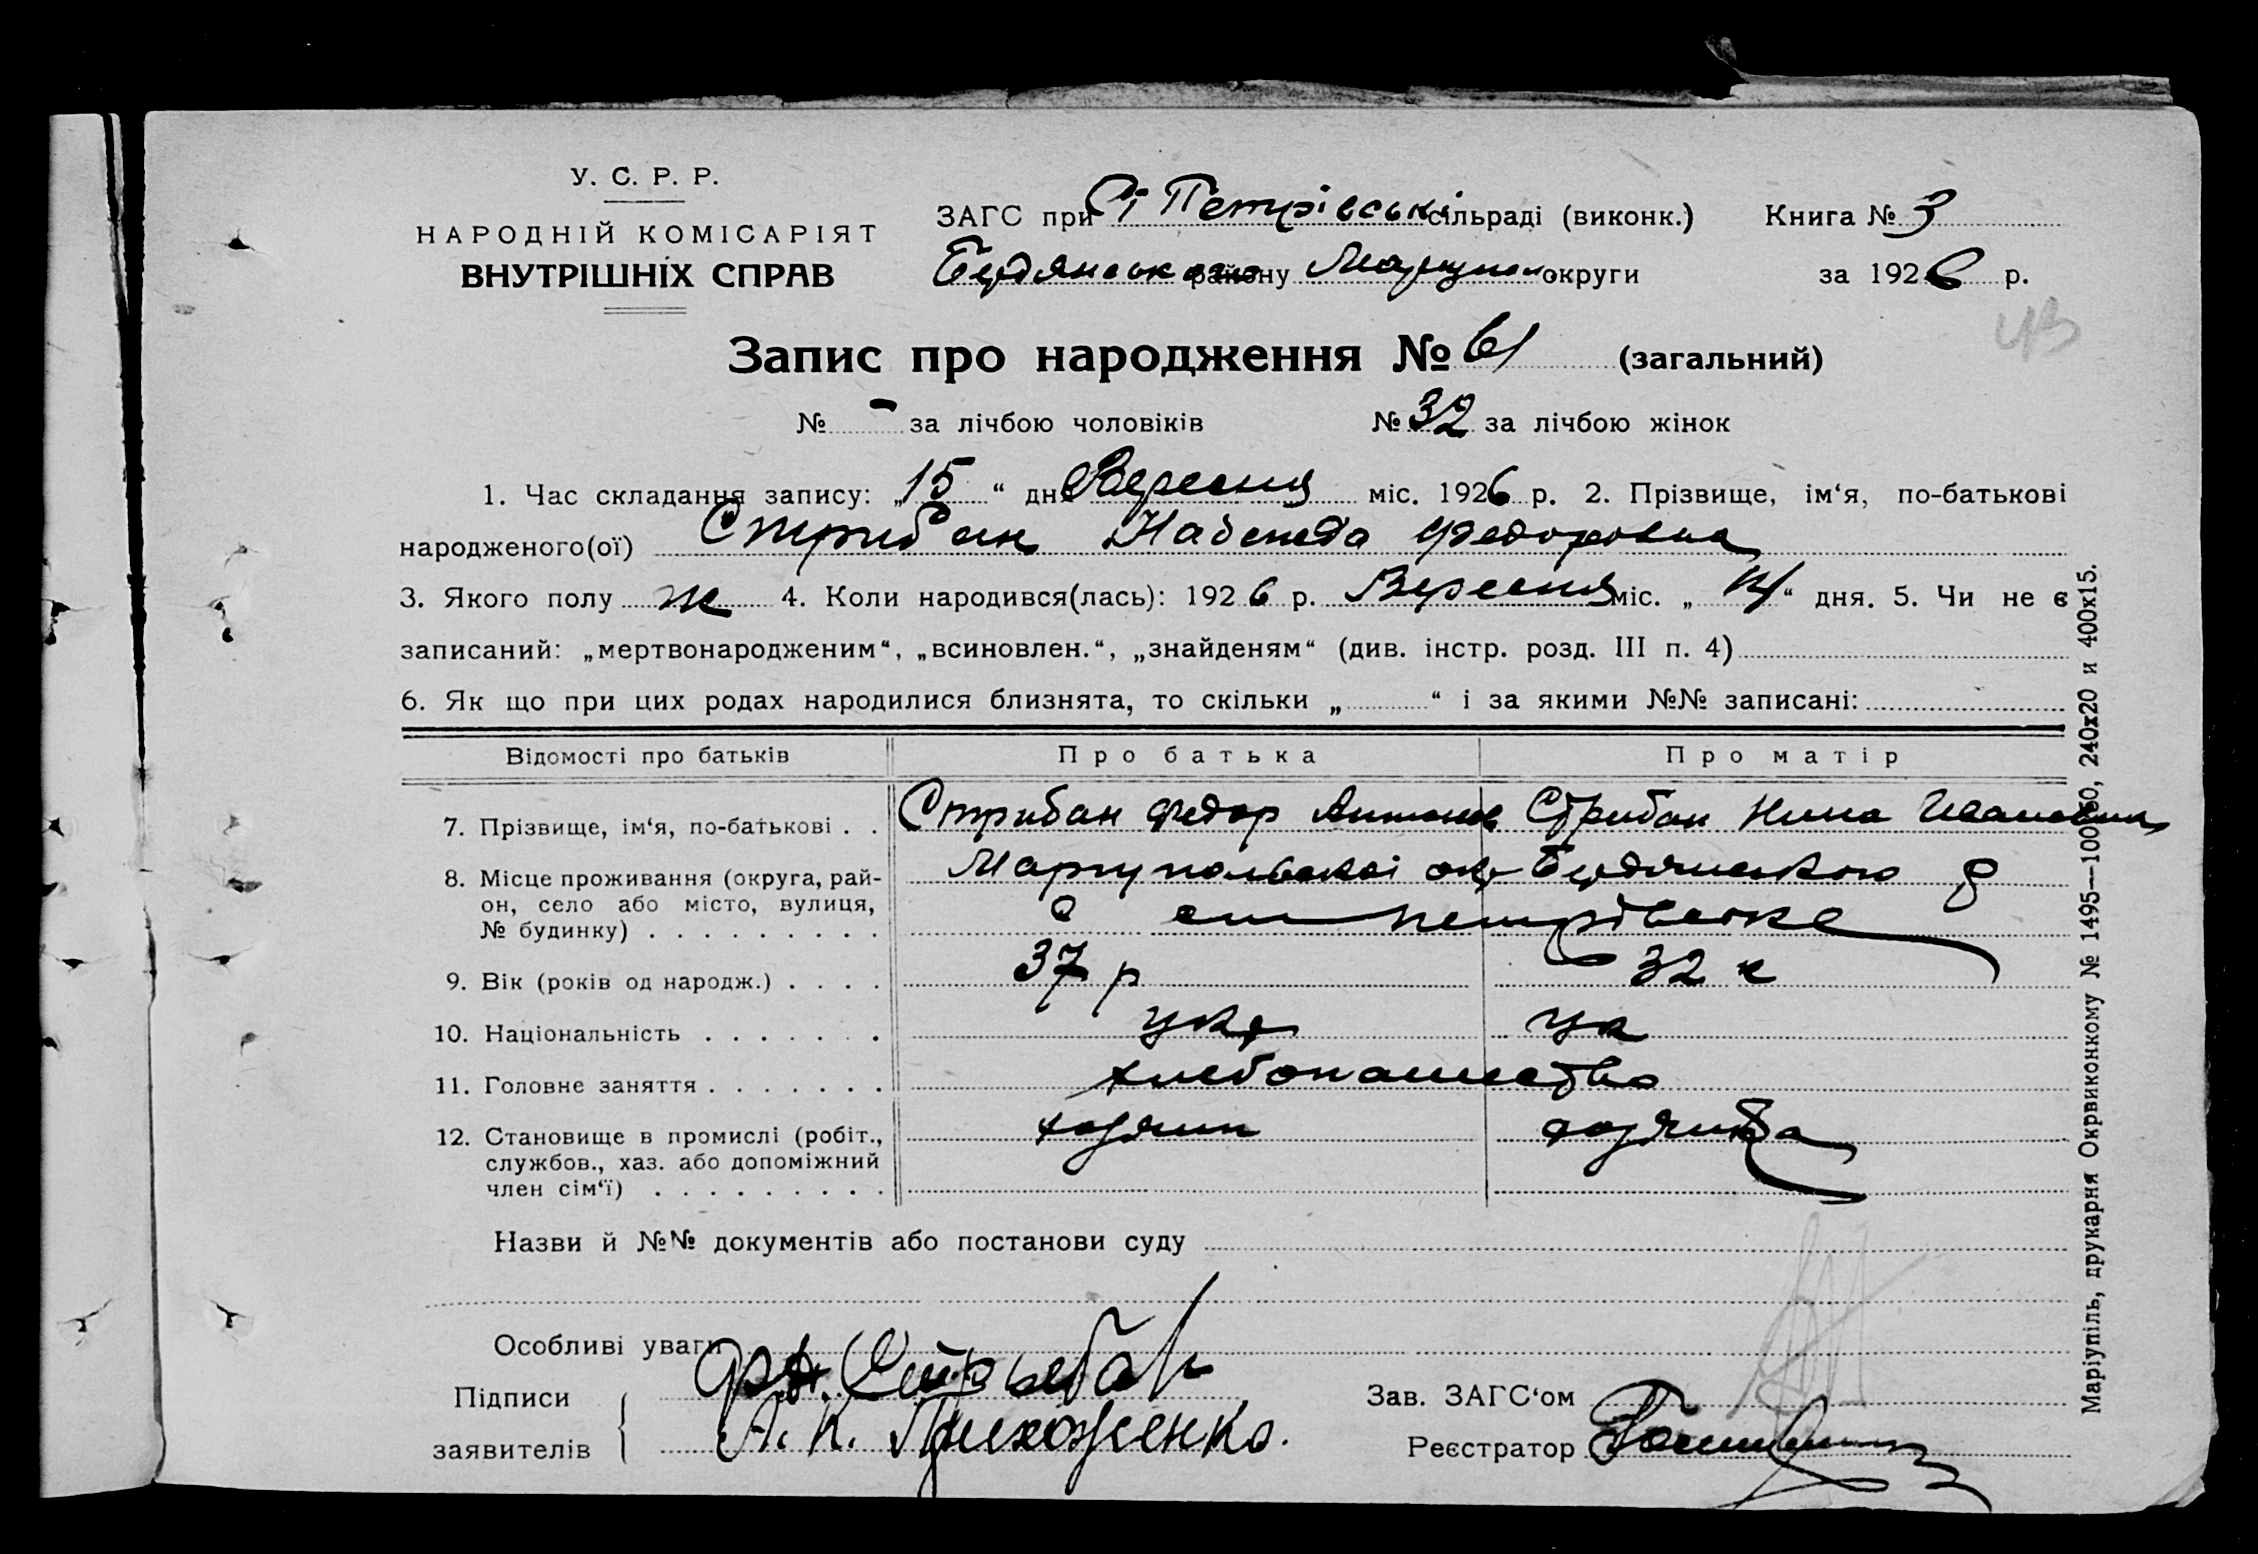 У. С. Р. Р.
НАРОДНІЙ КОМІСАРІЯТ
ВНУТРІШНІХ СПРАВ
ЗАГС при Ст Петрівські сільраді (виконк.) Книга № 3
Бердянського району Мариупол округи за 1926 р.
43
Запис про народження № 61 (загальний)
№ - за лічбою чоловіків № 32 за лічбою жінок
1. Час складання запису: „15“ дн Вересня міс. 1926 р. 2. Прізвище, ім‘я, по-батькові
народженого(ої) Стрибан Надежда Федоровна
3. Якого полу ж 4. Коли народився(лась): 1926 р. Вересня міс. „ “ дня. 5. Чи не є
записаний: „мертвонародженим“, „всиновлен.“, „знайденям“ (див. інстр. розд. III п. 4)
6. Як що при цих родах народилися близнята, то скільки „ “ і за якими №№ записані:
Відомості про батьків Про батька Про матір
7. Прізвище, ім‘я, по-батькові . . Стрибан Федор Антонов Стрибан Нина Ивановна
8. Місце проживання (округа, рай- Мариупольської окр Бердянського р
он, село або місто, вулиця, с ст петрівске
№ будинку) . . . . . . . . .
9. Вік (років од народж.) . . . . 37 р 32 г
10. Національність . . . . . . . укр ук
11. Головне заняття . . . . . . . хлебопашество
12. Становище в промислі (робіт., хозяин хозяйка
службов., хаз. або допоміжний
член сім‘ї) . . . . . . . . .
Назви й №№ документів або постанови суду
Особливі уваги
Підписи Ф.А. Стрыбан Зав. ЗАГС‘ом
заявителів А. К. Прихоженко. Реєстратор
Маріупіль, друкарня Окрвиконкому № 1495—100х50, 240х20 и 400х15.